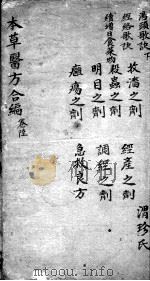 湯頭歌訣下
經絡歌訣
續增日食菜物
收濇之劑
殺蟲之劑
明目之劑
癰瘍之劑
經產之劑
調經之劑
急救良方
渭珍氏
本草醫方合編 卷陸